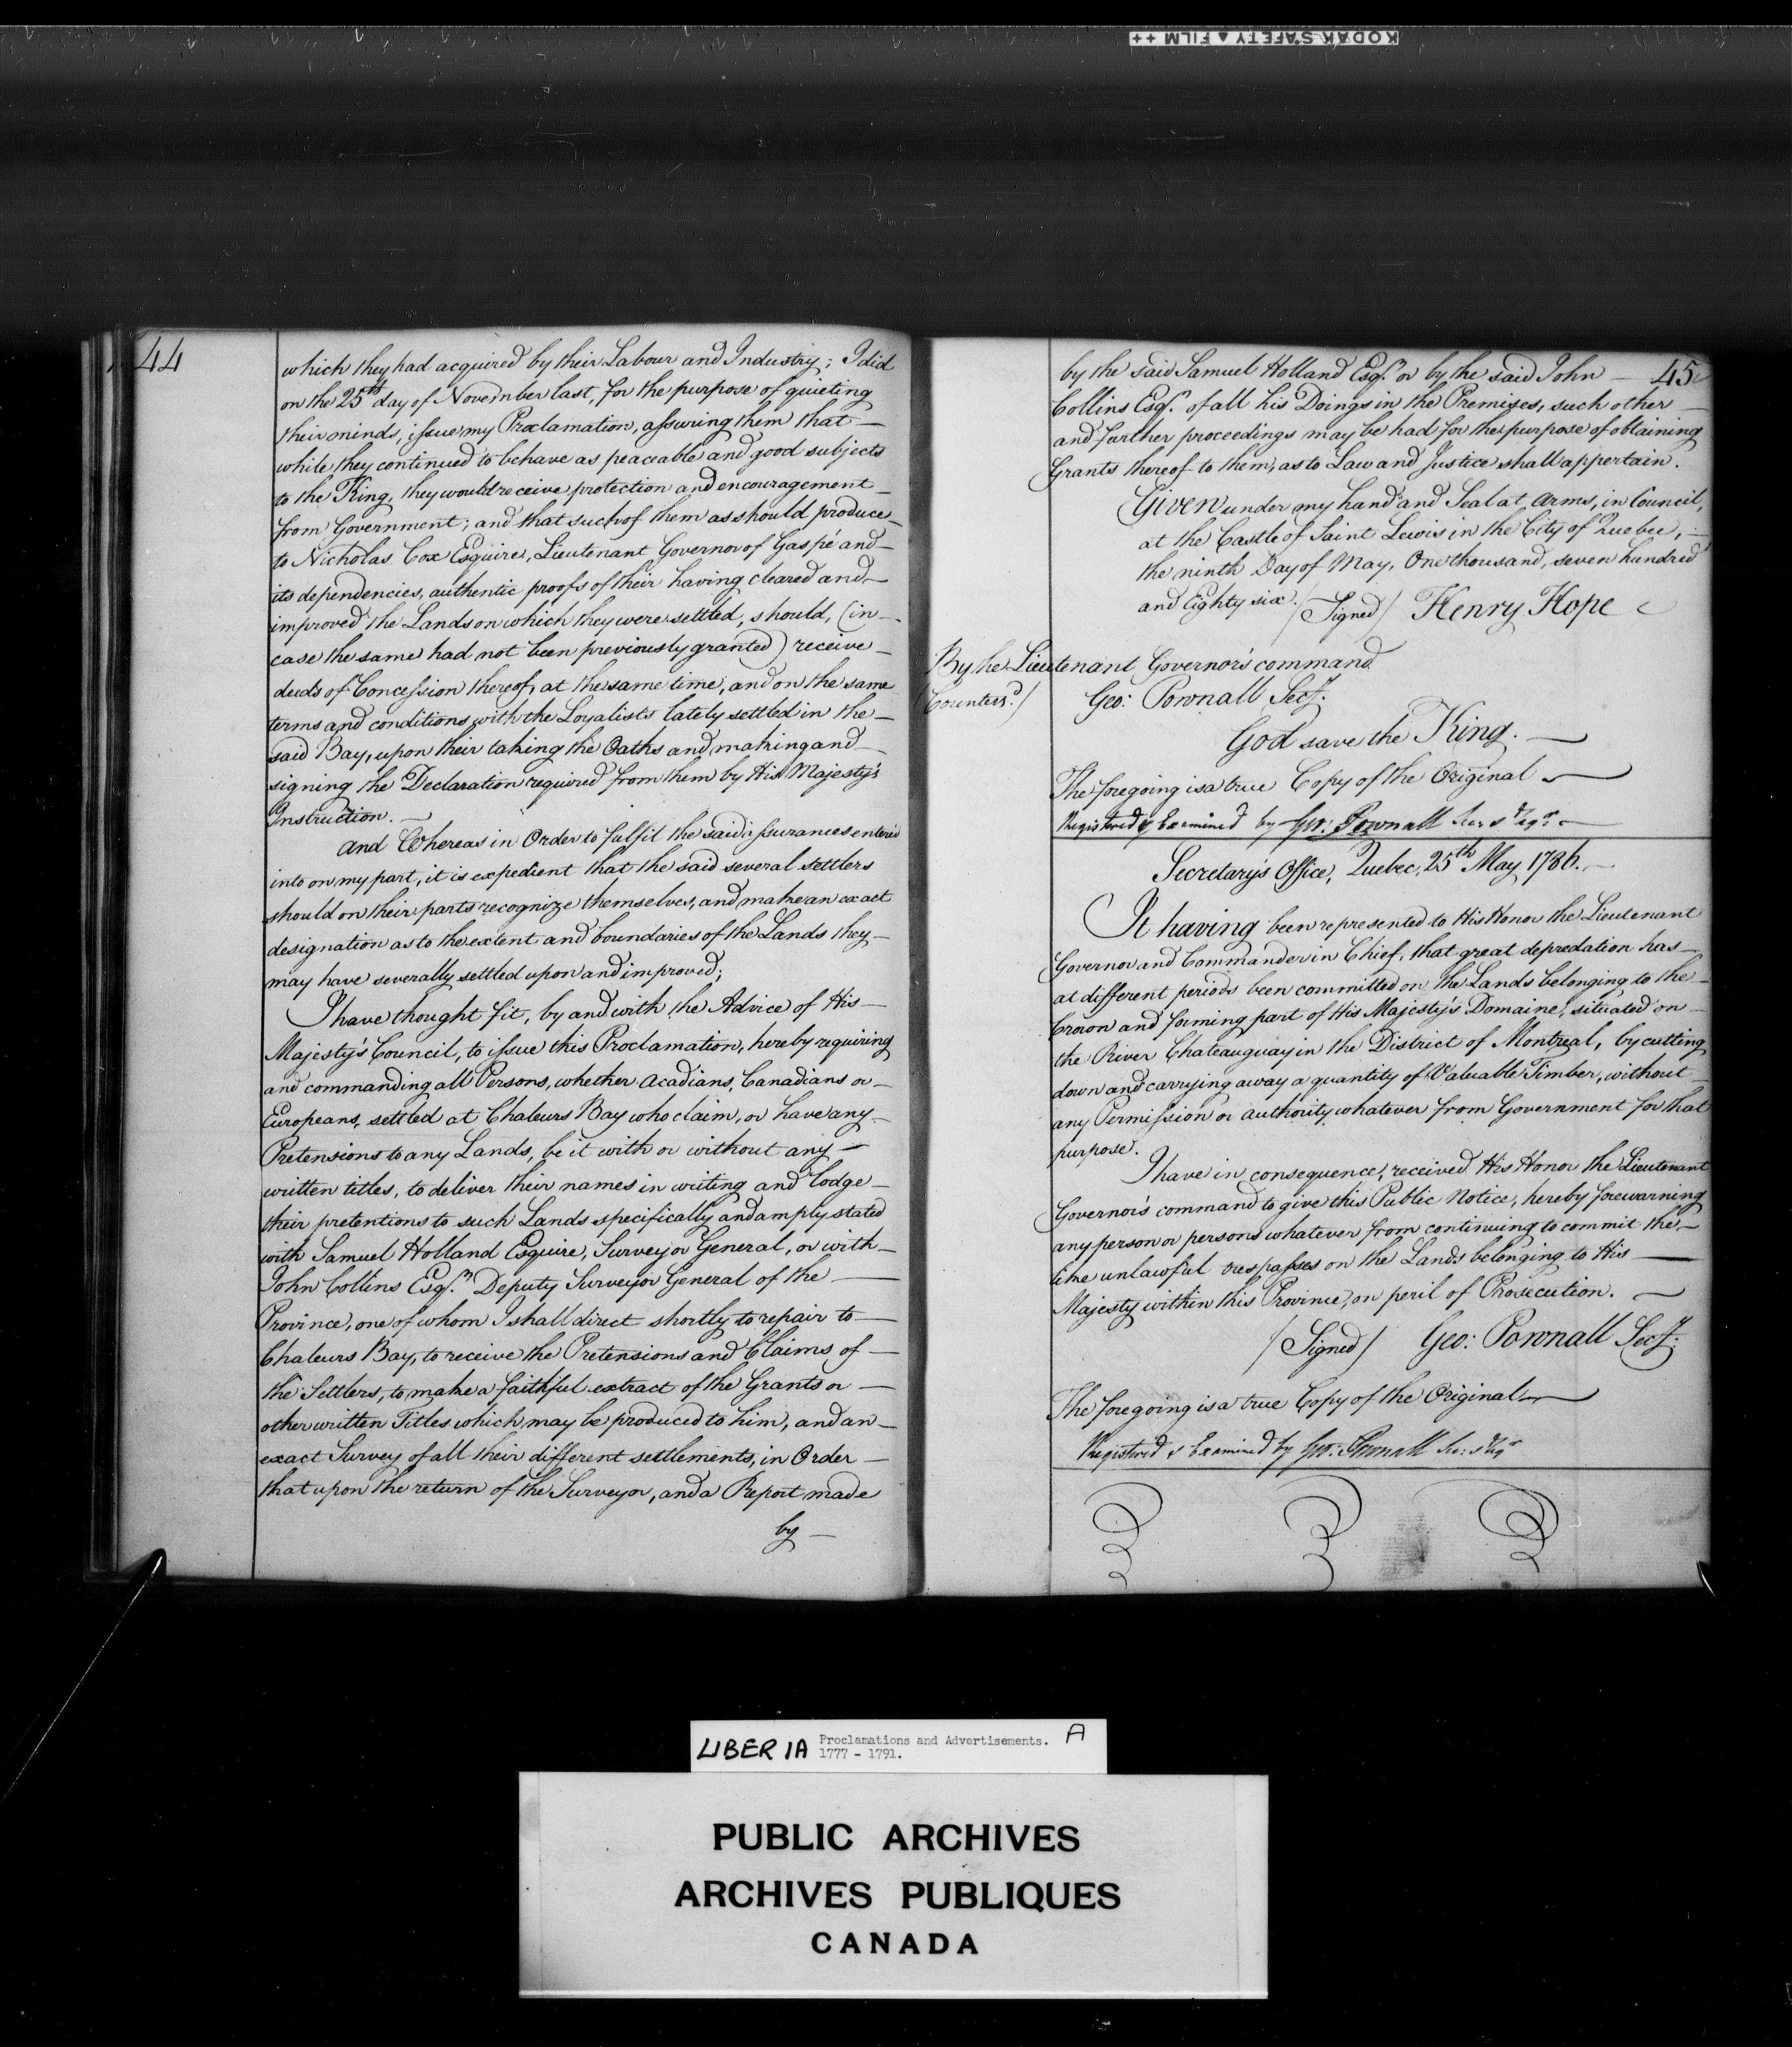 KODAK SAFETY ▲ FILM ++
44
which they had acquired by their Labour and Industry; I did
on the 25th day of November last, for the purpose of quieting
their minds, issue my Proclamation, assuring them that —
while they continued to behave as peaceable and good subjects
to the King, they would receive protection and encouragement —
from Government; and that such of them as should produce —
to Nicholas Cox Esquire, Lieutenant Governor of Gaspé and —
its dependencies, authentic proofs of their having cleared and —
improved the Lands on which they were settled, should, (in —
case the same had not been previously granted) receive —
deeds of Concession thereof, at the same time, and on the same
terms and conditions with the Loyalists lately settled in the —
said Bay, upon their taking the Oaths and making and —
signing the Declaration required from them by His Majesty's
Instruction. —
And Whereas in Order to fulfil the said assurances enter'd
into on my part, it is expedient that the said several settlers
should on their parts recognize themselves, and make an exact
designation as to the extent and boundaries of the Lands they —
may have severally settled upon and improved;
I have thought fit, by and with the Advice of His —
Majesty's Council, to issue this Proclamation, hereby requiring
and commanding all Persons, whether Acadians, Canadians or —
Europeans, settled at Chaleurs Bay who claim, or have any —
Pretensions to any Lands, be it with or without any —
written titles, to deliver their names in writing and lodge —
their pretentions to such Lands specifically and amply stated
with Samuel Holland Esquire, Surveyor General, or with —
John Collins Esqr. Deputy Surveyor General of the —
Province, one of whom I shall direct shortly to repair to —
Chaleurs Bay, to receive the Pretensions and Claims of —
the Settlers, to make a faithful extract of the Grants or —
other written Titles which may be produced to him, and an —
exact Survey of all their different settlements, in Order —
that upon the return of the Surveyor, and a Report made
by —
45
by the said Samuel Holland Esqr. or by the said John —
Collins Esqr. of all his Doings in the Premises, such other —
and further proceedings may be had for the purpose of obtaining
Grants thereof to them, as to Law and Justice shall appertain.
Given under my hand and Seal at Arms, in Council,
at the Castle of Saint Lewis in the City of Quebec, —
the ninth Day of May, One thousand, seven hundred
and Eighty six. (Signed) Henry Hope
By he Lieutenant Governor's command
(Counters.d) Geo: Pownall Secy.
God save the King. —
The foregoing is a true Copy of the Original —
Registered & Examined by Geo: Pownall Sec: & Regr. —
Secretary's Office, Quebec, 25th May 1786. —
It having been represented to His Honor the Lieutenant
Governor and Commander in Chief, that great depredation has —
at different periods been committed on the Lands belonging to the —
Crown and forming part of His Majesty's Domaine, situated on —
the River Chateauguay in the District of Montreal, by cutting
down and carrying away a quantity of Valuable Timber, without
any Permission or authority whatever from Government for that
purpose.
I have in consequence, received His Honor the Lieutenant
Governor's command to give this Public Notice, hereby forewarning
any person or persons whatever from continuing to commit the —
like unlawful trespasses on the Lands belonging to His —
Majesty within this Province, on peril of Prosecution. —
(Signed) Geo: Pownall Secy.
The foregoing is a true Copy of the Original —
Registered & Examined by Geo: Pownall Sec: & Regr
LIBER IA Proclamations and Advertisements. A
1777 - 1791.
PUBLIC ARCHIVES
ARCHIVES PUBLIQUES
CANADA